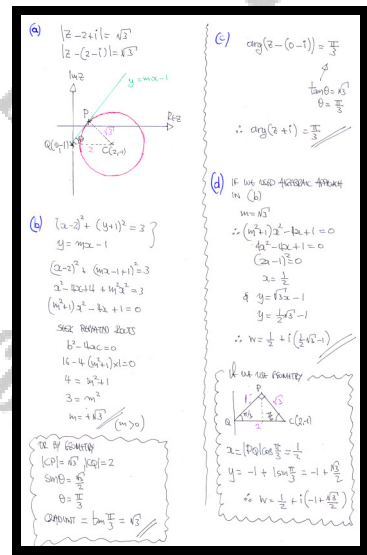 (a)
|z-2+i| = √3
|z-(2-i)| = √3
Im z
y = mx-1
P
Re z
√3
Q(0,-1)
2
C(2,-1)
(b) (x-2)² + (y+1)² = 3
y = mx-1
(x-2)² + (mx-1+1)² = 3
x²-4x+4 + m²x² = 3
(m²+1)x² - 4x + 1 = 0
SEEK REPEATED ROOTS
b²-4ac = 0
16-4(m²+1)×1 = 0
4 = m²+1
3 = m²
m = +√3 (m>0)
OR BY GEOMETRY
|CP| = √3 |CQ| = 2
Sinθ = √3/2
θ = π/3
GRADIENT = tan π/3 = √3
(c)
arg(z-(0-i)) = π/3
tanθ = √3
θ = π/3
∴ arg(z+i) = π/3
(d) IF WE USED ALGEBRAIC APPROACH
IN (b)
m = √3
∴ (m²+1)x²-4x+1 = 0
4x²-4x+1 = 0
(2x-1)² = 0
x = 1/2
& y = √3x-1
y = 1/2√3-1
∴ w = 1/2 + i(1/2√3-1)
IF WE USE GEOMETRY
P
1
√3
Q
π/3
π/6
C(2,-1)
2
x = |PQ|cos π/3 = 1/2
y = -1 + 1sin π/3 = -1 + √3/2
∴ w = 1/2 + i(-1+√3/2)